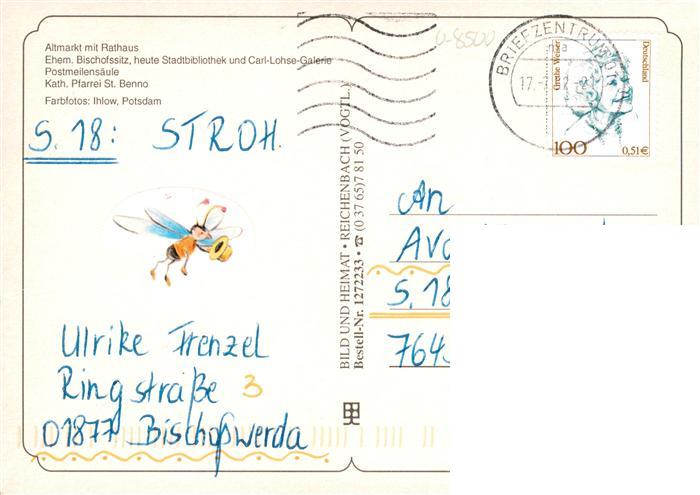 Altmarkt mit Rathaus
Ehem. Bischofssitz, heute Stadtbibliothek und Carl-Lohse-Galerie
Postmeilensäule
Kath. Pfarrei St. Benno
Farbfotos: Ihlow, Potsdam
S. 18: STROH.
Ulrike Frenzel
Ringstraße 3
01877 Bischoßwerda
BILD UND HEIMAT • REICHENBACH (VOGTL.)
Bestell-Nr. 1272233 • ☎ (0 37 65) 7 81 50
0-8500
BRIEFZENTRUM
Grethe Weiser
Deutschland
100
0,51€
An
S. 18